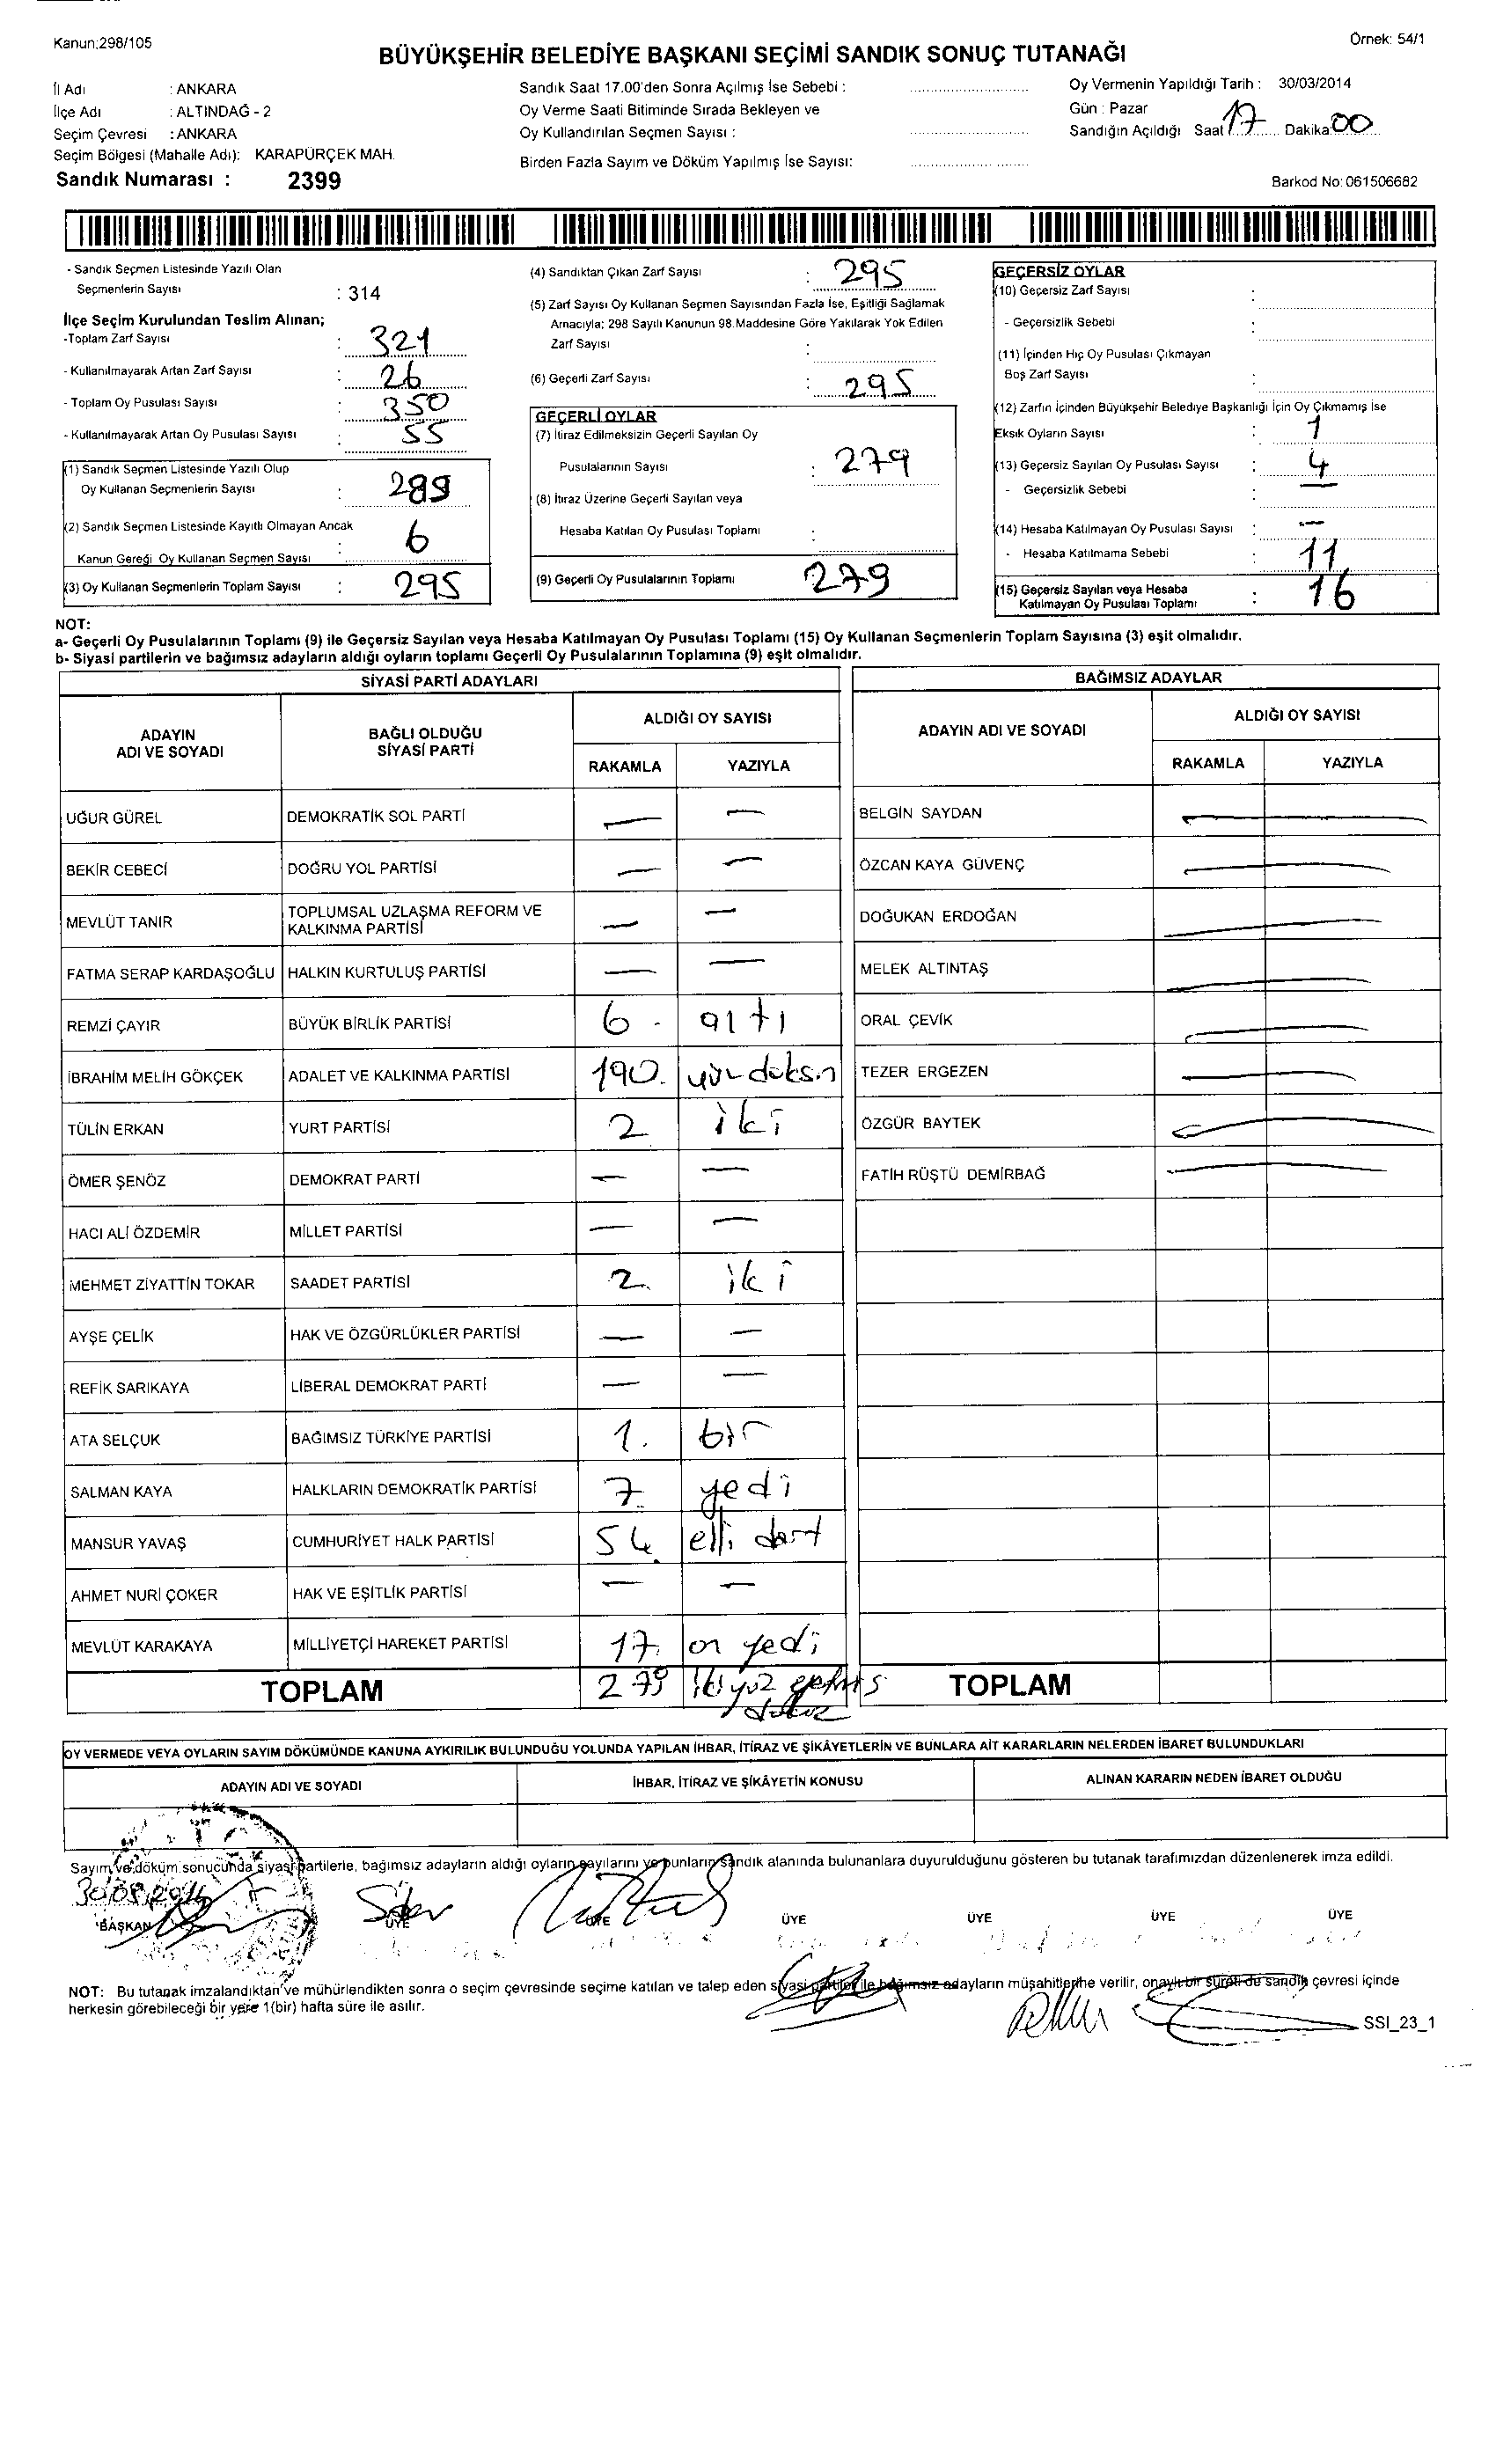 Kanun:298/105
Örnek: 54/1
BÜYÜKŞEHİR BELEDİYE BAŞKANI SEÇİMİ SANDIK SONUÇ TUTANAĞI
İl Adı : ANKARA
İlçe Adı : ALTINDAĞ - 2
Seçim Çevresi : ANKARA
Seçim Bölgesi (Mahalle Adı): KARAPÜRÇEK MAH.
Sandık Numarası : 2399
Sandık Saat 17.00'den Sonra Açılmış İse Sebebi :
Oy Verme Saati Bitiminde Sırada Bekleyen ve
Oy Kullandırılan Seçmen Sayısı :
Birden Fazla Sayım ve Döküm Yapılmış İse Sayısı:
Oy Vermenin Yapıldığı Tarih : 30/03/2014
Gün : Pazar
Sandığın Açıldığı Saat 17 Dakika 00
Barkod No: 061506682
- Sandık Seçmen Listesinde Yazılı Olan
Seçmenlerin Sayısı : 314
İlçe Seçim Kurulundan Teslim Alınan;
-Toplam Zarf Sayısı : 321
- Kullanılmayarak Artan Zarf Sayısı : 26
- Toplam Oy Pusulası Sayısı : 350
- Kullanılmayarak Artan Oy Pusulası Sayısı : 55
(1) Sandık Seçmen Listesinde Yazılı Olup
Oy Kullanan Seçmenlerin Sayısı : 289
(2) Sandık Seçmen Listesinde Kayıtlı Olmayan Ancak
Kanun Gereği Oy Kullanan Seçmen Sayısı : 6
(3) Oy Kullanan Seçmenlerin Toplam Sayısı : 295
(4) Sandıktan Çıkan Zarf Sayısı : 295
(5) Zarf Sayısı Oy Kullanan Seçmen Sayısından Fazla İse, Eşitliği Sağlamak
Amacıyla; 298 Sayılı Kanunun 98.Maddesine Göre Yakılarak Yok Edilen
Zarf Sayısı :
(6) Geçerli Zarf Sayısı : 295
GEÇERLİ OYLAR
(7) İtiraz Edilmeksizin Geçerli Sayılan Oy
Pusulalarının Sayısı : 279
(8) İtiraz Üzerine Geçerli Sayılan veya
Hesaba Katılan Oy Pusulası Toplamı :
(9) Geçerli Oy Pusulalarının Toplamı 279
GEÇERSİZ OYLAR
(10) Geçersiz Zarf Sayısı :
- Geçersizlik Sebebi :
(11) İçinden Hiç Oy Pusulası Çıkmayan
Boş Zarf Sayısı :
(12) Zarfın İçinden Büyükşehir Belediye Başkanlığı İçin Oy Çıkmamış İse
Eksik Oyların Sayısı : 1
(13) Geçersiz Sayılan Oy Pusulası Sayısı : 4
- Geçersizlik Sebebi : —
(14) Hesaba Katılmayan Oy Pusulası Sayısı : —
- Hesaba Katılmama Sebebi : 11
(15) Geçersiz Sayılan veya Hesaba
Katılmayan Oy Pusulası Toplamı : 16
NOT:
a- Geçerli Oy Pusulalarının Toplamı (9) ile Geçersiz Sayılan veya Hesaba Katılmayan Oy Pusulası Toplamı (15) Oy Kullanan Seçmenlerin Toplam Sayısına (3) eşit olmalıdır.
b- Siyasi partilerin ve bağımsız adayların aldığı oyların toplamı Geçerli Oy Pusulalarının Toplamına (9) eşit olmalıdır.
SİYASİ PARTİ ADAYLARI
ADAYIN ADI VE SOYADI
BAĞLI OLDUĞU SİYASİ PARTİ
ALDIĞI OY SAYISI
RAKAMLA YAZIYLA
UĞUR GÜREL DEMOKRATİK SOL PARTİ — —
BEKİR CEBECİ DOĞRU YOL PARTİSİ — —
MEVLÜT TANIR TOPLUMSAL UZLAŞMA REFORM VE KALKINMA PARTİSİ — —
FATMA SERAP KARDAŞOĞLU HALKIN KURTULUŞ PARTİSİ — —
REMZİ ÇAYIR BÜYÜK BİRLİK PARTİSİ 6 - altı
İBRAHİM MELİH GÖKÇEK ADALET VE KALKINMA PARTİSİ 190. yüz doksan
TÜLİN ERKAN YURT PARTİSİ 2 iki
ÖMER ŞENÖZ DEMOKRAT PARTİ — —
HACI ALİ ÖZDEMİR MİLLET PARTİSİ — —
MEHMET ZİYATTİN TOKAR SAADET PARTİSİ 2. iki
AYŞE ÇELİK HAK VE ÖZGÜRLÜKLER PARTİSİ — —
REFİK SARIKAYA LİBERAL DEMOKRAT PARTİ — —
ATA SELÇUK BAĞIMSIZ TÜRKİYE PARTİSİ 1. bir
SALMAN KAYA HALKLARIN DEMOKRATİK PARTİSİ 7. yedi
MANSUR YAVAŞ CUMHURİYET HALK PARTİSİ 54. elli dört
AHMET NURİ ÇOKER HAK VE EŞİTLİK PARTİSİ — —
MEVLÜT KARAKAYA MİLLİYETÇİ HAREKET PARTİSİ 17. on yedi
TOPLAM 279 ikiyüz yetmiş dokuz
BAĞIMSIZ ADAYLAR
ADAYIN ADI VE SOYADI
ALDIĞI OY SAYISI
RAKAMLA YAZIYLA
BELGİN SAYDAN
ÖZCAN KAYA GÜVENÇ
DOĞUKAN ERDOĞAN
MELEK ALTINTAŞ
ORAL ÇEVİK
TEZER ERGEZEN
ÖZGÜR BAYTEK
FATİH RÜŞTÜ DEMİRBAĞ
TOPLAM
OY VERMEDE VEYA OYLARIN SAYIM DÖKÜMÜNDE KANUNA AYKIRILIK BULUNDUĞU YOLUNDA YAPILAN İHBAR, İTİRAZ VE ŞİKÂYETLERİN VE BUNLARA AİT KARARLARIN NELERDEN İBARET BULUNDUKLARI
ADAYIN ADI VE SOYADI
İHBAR, İTİRAZ VE ŞİKÂYETİN KONUSU
ALINAN KARARIN NEDEN İBARET OLDUĞU
Sayım ve döküm sonucunda siyasi partilerle, bağımsız adayların aldığı oyların sayılarını ve bunların sandık alanında bulunanlara duyurulduğunu gösteren bu tutanak tarafımızdan düzenlenerek imza edildi.
BAŞKAN ÜYE ÜYE ÜYE ÜYE ÜYE ÜYE
NOT: Bu tutanak imzalandıktan ve mühürlendikten sonra o seçim çevresinde seçime katılan ve talep eden siyasi partiler ile bağımsız adayların müşahitlerine verilir, onaylı bir sureti de sandık çevresi içinde
herkesin görebileceği bir yere 1(bir) hafta süre ile asılır.
SSI_23_1